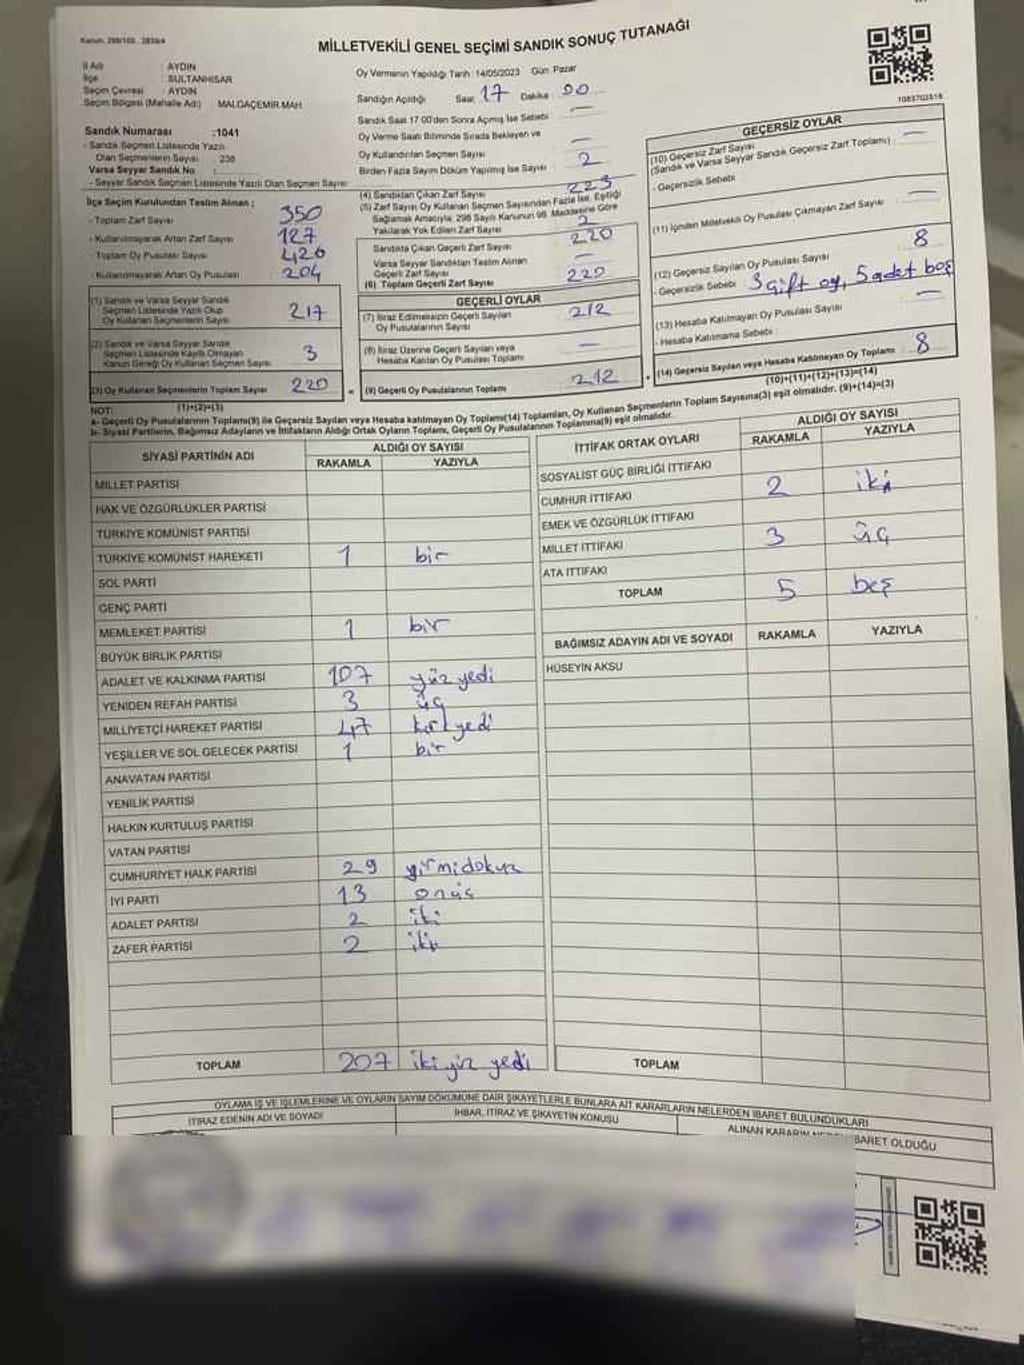 MİLLETVEKİLİ GENEL SEÇİMİ SANDIK SONUÇ TUTANAĞI
İl Adı : AYDIN
İlçe : SULTANHİSAR
Seçim Çevresi : AYDIN
Seçim Bölgesi (Mahalle Adı) : MALGAÇEMİR MAH.
Sandık Numarası :1041
- Sandık Seçmen Listesinde Yazılı
Olan Seçmenlerin Sayısı : 238
Varsa Seyyar Sandık No :
- Seyyar Sandık Seçmen Listesinde Yazılı Olan Seçmen Sayısı
Oy Vermenin Yapıldığı Tarih : 14/05/2023 Gün: Pazar
Sandığın Açıldığı Saat 17 Dakika 00
Sandık Saat 17.00'den Sonra Açmış İse Sebebi —
Oy Verme Saati Bitiminde Sırada Bekleyen ve
Oy Kullandırılan Seçmen Sayısı —
Birden Fazla Sayım Döküm Yapılmış İse Sayısı 2
İlçe Seçim Kurulundan Teslim Alınan ;
- Toplam Zarf Sayısı 350
- Kullanılmayarak Artan Zarf Sayısı 127
- Toplam Oy Pusulası Sayısı 426
- Kullanılmayarak Artan Oy Pusulası 204
(1) Sandık ve Varsa Seyyar Sandık
Seçmen Listesinde Yazılı Olup
Oy Kullanan Seçmenlerin Sayısı 217
(2) Sandık ve Varsa Seyyar Sandık
Seçmen Listesinde Kayıtlı Olmayan
Kanun Gereği Oy Kullanan Seçmen Sayısı 3
(3) Oy Kullanan Seçmenlerin Toplam Sayısı 220
(1)+(2)=(3)
(4) Sandıktan Çıkan Zarf Sayısı 223
(5) Zarf Sayısı Oy Kullanan Seçmen Sayısından Fazla İse, Eşitliği
Sağlamak Amacıyla, 298 Sayılı Kanunun 98. Maddesine Göre
Yakılarak Yok Edilen Zarf Sayısı 2
Sandıkta Çıkan Geçerli Zarf Sayısı 220
Varsa Seyyar Sandıktan Teslim Alınan
Geçerli Zarf Sayısı —
(6) Toplam Geçerli Zarf Sayısı 220
GEÇERLİ OYLAR
(7) İtiraz Edilmeksizin Geçerli Sayılan
Oy Pusulalarının Sayısı 212
(8) İtiraz Üzerine Geçerli Sayılan veya
Hesaba Katılan Oy Pusulası Toplamı —
= (9) Geçerli Oy Pusulalarının Toplamı 212
1083702518
GEÇERSİZ OYLAR
(10) Geçersiz Zarf Sayısı
(Sandık ve Varsa Seyyar Sandık Geçersiz Zarf Toplamı) : —
- Geçersizlik Sebebi :
(11) İçinden Milletvekili Oy Pusulası Çıkmayan Zarf Sayısı —
(12) Geçersiz Sayılan Oy Pusulası Sayısı 8
- Geçersizlik Sebebi : 3 çift oy, 5 adet boş
(13) Hesaba Katılmayan Oy Pusulası Sayısı —
- Hesaba Katılmama Sebebi :
+ (14) Geçersiz Sayılan veya Hesaba Katılmayan Oy Toplamı 8
(10)+(11)+(12)+(13)=(14)
NOT:
a- Geçerli Oy Pusulalarının Toplamı(9) ile Geçersiz Sayılan veya Hesaba katılmayan Oy Toplamı(14) Toplamları, Oy Kullanan Seçmenlerin Toplam Sayısına(3) eşit olmalıdır. (9)+(14)=(3)
b- Siyasi Partilerin, Bağımsız Adayların ve İttifakların Aldığı Ortak Oyların Toplamı, Geçerli Oy Pusulalarının Toplamına(9) eşit olmalıdır.
SİYASİ PARTİNİN ADI ALDIĞI OY SAYISI
RAKAMLA YAZIYLA
MİLLET PARTİSİ
HAK VE ÖZGÜRLÜKLER PARTİSİ
TÜRKİYE KOMÜNİST PARTİSİ
TÜRKİYE KOMÜNİST HAREKETİ 1 bir
SOL PARTİ
GENÇ PARTİ
MEMLEKET PARTİSİ 1 bir
BÜYÜK BİRLİK PARTİSİ
ADALET VE KALKINMA PARTİSİ 107 yüz yedi
YENİDEN REFAH PARTİSİ 3 üç
MİLLİYETÇİ HAREKET PARTİSİ 47 kırk yedi
YEŞİLLER VE SOL GELECEK PARTİSİ 1 bir
ANAVATAN PARTİSİ
YENİLİK PARTİSİ
HALKIN KURTULUŞ PARTİSİ
VATAN PARTİSİ
CUMHURİYET HALK PARTİSİ 29 yirmidokuz
İYİ PARTİ 13 onüç
ADALET PARTİSİ 2 iki
ZAFER PARTİSİ 2 iki
TOPLAM 207 iki yüz yedi
İTTİFAK ORTAK OYLARI ALDIĞI OY SAYISI
RAKAMLA YAZIYLA
SOSYALİST GÜÇ BİRLİĞİ İTTİFAKI
CUMHUR İTTİFAKI 2 iki
EMEK VE ÖZGÜRLÜK İTTİFAKI
MİLLET İTTİFAKI 3 üç
ATA İTTİFAKI
TOPLAM 5 beş
BAĞIMSIZ ADAYIN ADI VE SOYADI RAKAMLA YAZIYLA
HÜSEYİN AKSU
TOPLAM
OYLAMA İŞ VE İŞLEMLERİNE VE OYLARIN SAYIM DÖKÜMÜNE DAİR ŞİKAYETLERLE BUNLARA AİT KARARLARIN NELERDEN İBARET BULUNDUKLARI
İTİRAZ EDENİN ADI VE SOYADI İHBAR, İTİRAZ VE ŞİKAYETİN KONUSU ALINAN KARARIN İBARET OLDUĞU